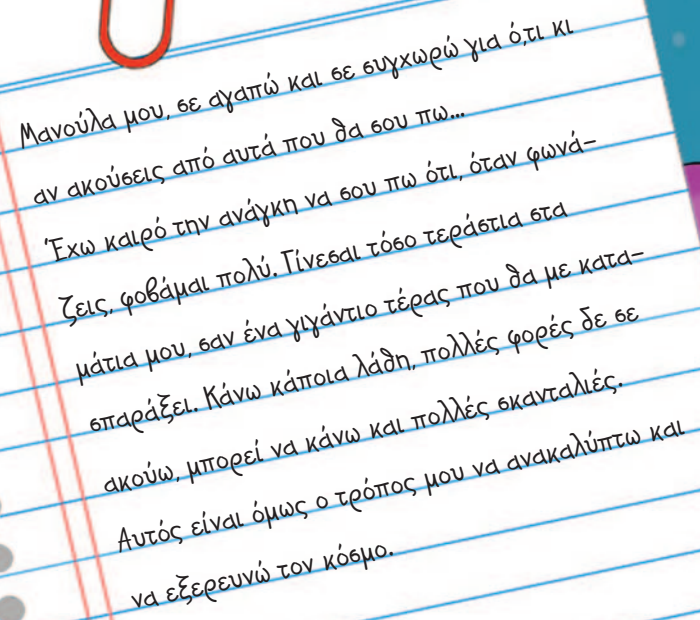 Μανούλα μου, σε αγαπώ και σε συγχωρώ για ό,τι κι
αν ακούσεις από αυτά που θα σου πω...
Έχω καιρό την ανάγκη να σου πω ότι, όταν φωνά-
ζεις, φοβάμαι πολύ. Γίνεσαι τόσο τεράστια στα
μάτια μου, σαν ένα γιγάντιο τέρας που θα με κατα-
σπαράξει. Κάνω κάποια λάθη, πολλές φορές δε σε
ακούω, μπορεί να κάνω και πολλές σκανταλιές.
Αυτός είναι όμως ο τρόπος μου να ανακαλύπτω και
να εξερευνώ τον κόσμο.